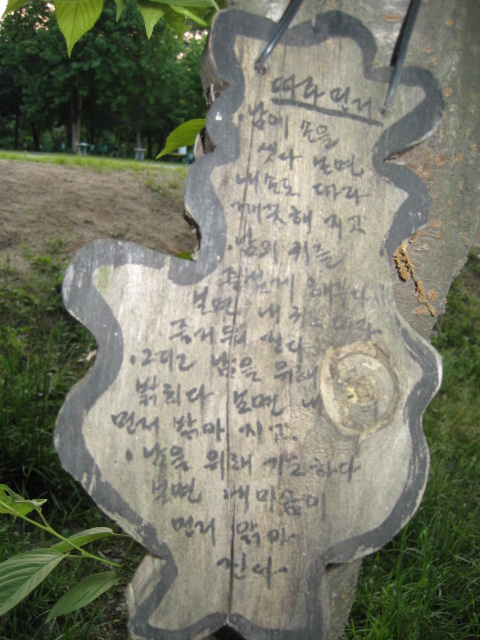 따라 먼저
· 남에 손을
씻다 보면
내 손도 따라
깨끗해 지고
남의 귀를
즐겁게 해주다
보면 내 귀도 따라
즐거워 진다
· 그리고 남을 위해
밝히다 보면 내
먼저 밝아 지고
· 남을 위해 기도하다
보면 내 마음이
먼저 맑아
진다